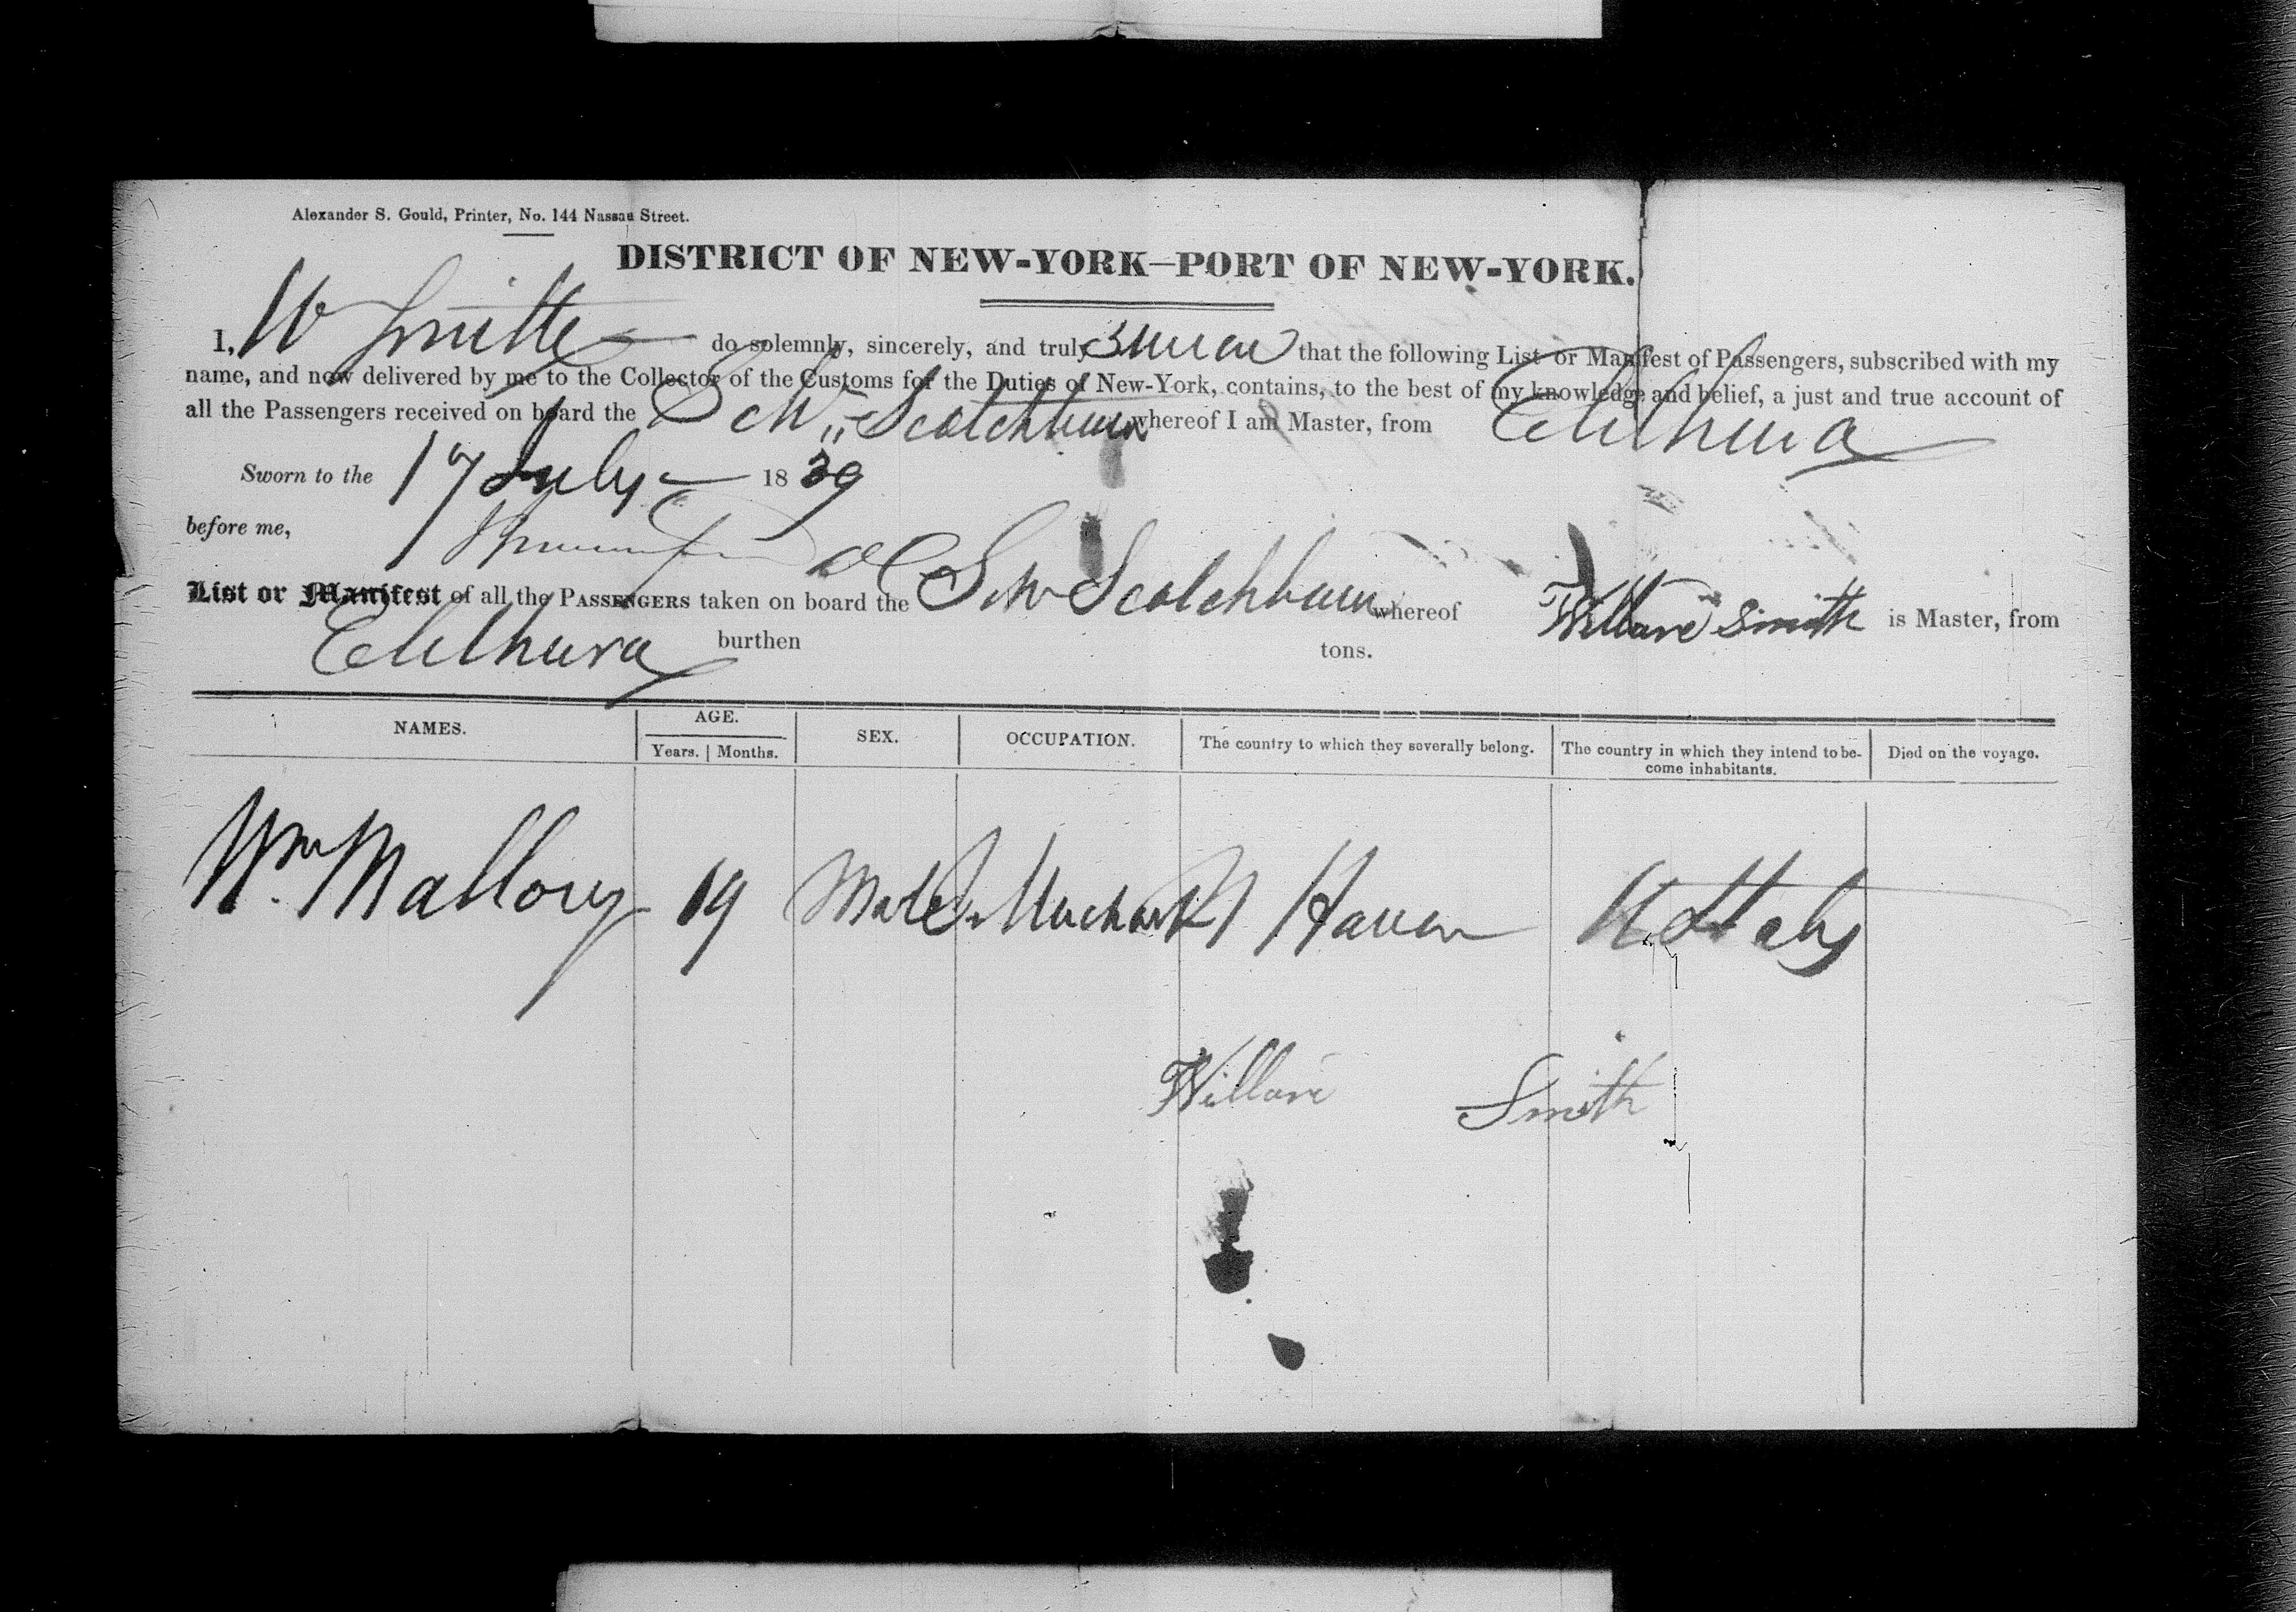 Alexander S. Gould, Printer, No. 144 Nassau Street.
DISTRICT OF NEW-YORK—PORT OF NEW-YORK.
I, W Smith do solemnly, sincerely, and truly swear that the following List or Manifest of Passengers, subscribed with my
name, and now delivered by me to the Collector of the Customs for the Duties of New-York, contains, to the best of my knowledge and belief, a just and true account of
all the Passengers received on board the Schr Scotchburn whereof I am Master, from Eleuthera
Sworn to the 17 July 1839
before me,
List or Manifest of all the PASSENGERS taken on board the Schr Scotchburn whereof Willard Smith is Master, from
Eleuthera burthen tons.
NAMES. AGE. SEX. OCCUPATION. The country to which they severally belong. The country in which they intend to be- Died on the voyage.
Years. Months. come inhabitants.
Wm Mallory 19 Male Mechanic N Haven U States
Willard Smith